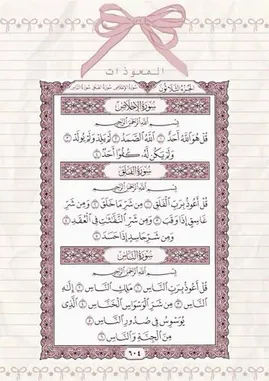 المعوذات
سُورَةُ الإِخْلَاصِ
بِسْمِ اللَّهِ الرَّحْمَٰنِ الرَّحِيمِ
قُلْ هُوَ اللَّهُ أَحَدٌ ١ اللَّهُ الصَّمَدُ ٢ لَمْ يَلِدْ وَلَمْ يُولَدْ ٣
وَلَمْ يَكُن لَّهُ كُفُوًا أَحَدٌ ٤
سُورَةُ الْفَلَقِ
بِسْمِ اللَّهِ الرَّحْمَٰنِ الرَّحِيمِ
قُلْ أَعُوذُ بِرَبِّ الْفَلَقِ ١ مِن شَرِّ مَا خَلَقَ ٢ وَمِن شَرِّ
غَاسِقٍ إِذَا وَقَبَ ٣ وَمِن شَرِّ النَّفَّاثَاتِ فِي الْعُقَدِ ٤
وَمِن شَرِّ حَاسِدٍ إِذَا حَسَدَ ٥
سُورَةُ النَّاسِ
بِسْمِ اللَّهِ الرَّحْمَٰنِ الرَّحِيمِ
قُلْ أَعُوذُ بِرَبِّ النَّاسِ ١ مَلِكِ النَّاسِ ٢ إِلَٰهِ
النَّاسِ ٣ مِن شَرِّ الْوَسْوَاسِ الْخَنَّاسِ ٤ الَّذِي
يُوَسْوِسُ فِي صُدُورِ النَّاسِ ٥
مِنَ الْجِنَّةِ وَالنَّاسِ ٦
٦٠٤